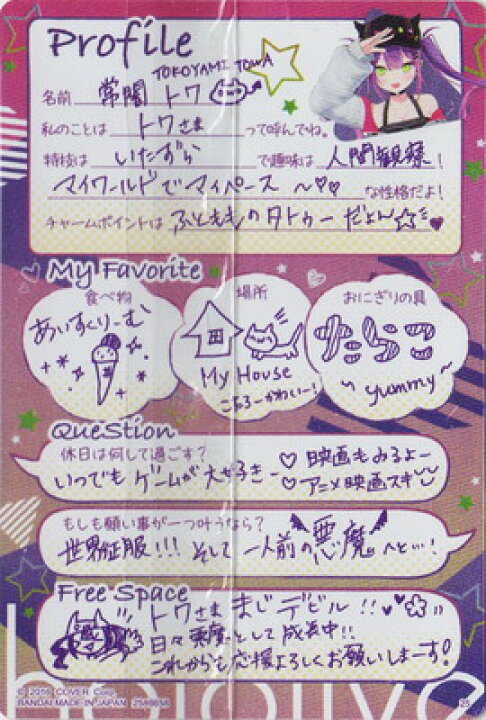 Profile
TOKOYAMI TOWA
名前 常闇トワ
私のことは トワさま って呼んでね。
特技は いたずら で趣味は 人間観察!
マイワールドでマイペース〜♡♡ な性格だよ!
チャームポイントは ふとももの タトゥー だよん☆ミ♥
My Favorite
食べ物
あいすくりーむ
場所
My House
こちろーかわいー!
おにぎりの具
たらこ
〜yummy〜
Question
休日は何して過ごす?
いつでもゲームが大好きー♡映画もみるよー
♡アニメ映画スキ
もしも願い事が一つ叶うなら?
世界征服!!! そして 一人前の悪魔へと…!
Free Space
トワさままじデビル!!
日々悪魔として成長中!!
これからも応援よろしくお願いしまーす!
© 2016 COVER Corp.
BANDAI MADE IN JAPAN
25
hololive